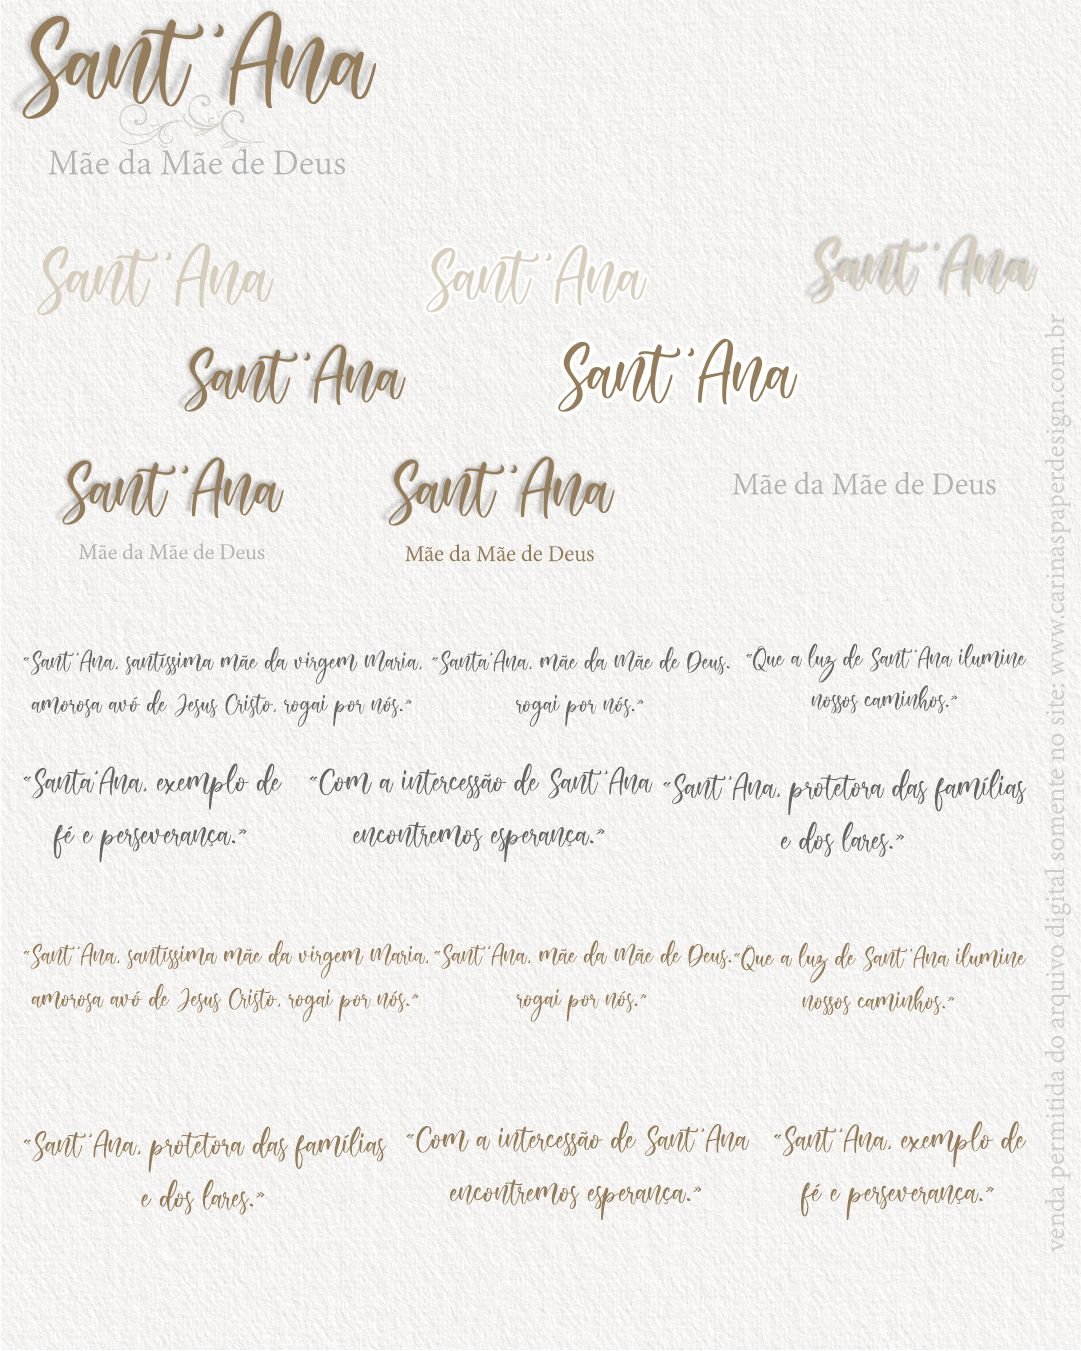 Sant'Ana
Mãe da Mãe de Deus
Sant'Ana
Sant'Ana
Sant'Ana
Sant'Ana
Sant'Ana
Sant'Ana
Mãe da Mãe de Deus
Sant'Ana
Mãe da Mãe de Deus
Mãe da Mãe de Deus
“Sant'Ana, santíssima mãe da virgem Maria,
amorosa avó de Jesus Cristo, rogai por nós.”
“Santa'Ana, mãe da Mãe de Deus,
rogai por nós.”
“Que a luz de Sant'Ana ilumine
nossos caminhos.”
“Santa'Ana, exemplo de
fé e perseverança.”
“Com a intercessão de Sant'Ana
encontremos esperança.”
“Sant'Ana, protetora das famílias
e dos lares.”
“Sant'Ana, santíssima mãe da virgem Maria,
amorosa avó de Jesus Cristo, rogai por nós.”
“Sant'Ana, mãe da Mãe de Deus,
rogai por nós.”
“Que a luz de Sant'Ana ilumine
nossos caminhos.”
“Sant'Ana, protetora das famílias
e dos lares.”
“Com a intercessão de Sant'Ana
encontremos esperança.”
“Sant'Ana, exemplo de
fé e perseverança.”
venda permitida do arquivo digital somente no site: www.carinaspaperdesign.com.br